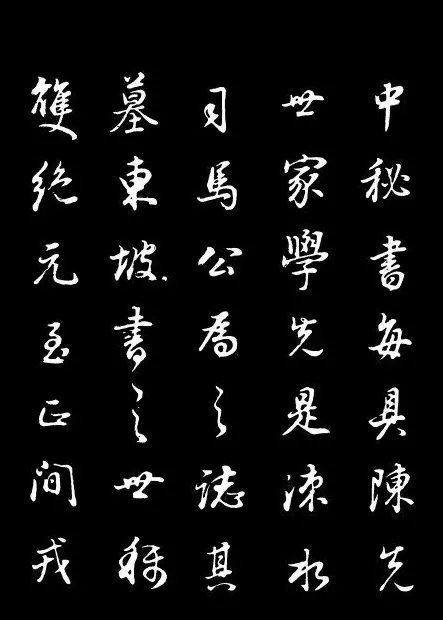 中秘書每具陳先
世家學先是涑水
司馬公為之誌其
墓東坡書之世稱
雙絕元至正間戎